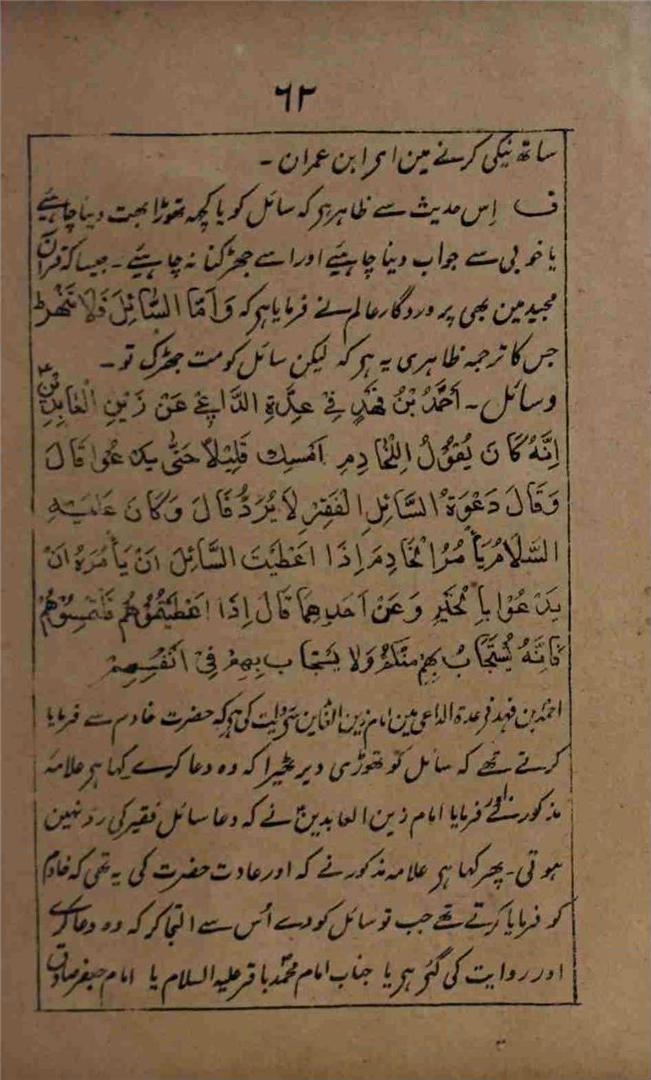 ۶۲
ساتھ نیکی کرنے مین اے ابن عمران ۔
ف اِس حدیث سے ظاہر ہے کہ سائل کو یا کچھ تھوڑا بہت دینا چاہئے
یا خوبی سے جواب دینا چاہیئے اور اسے جھڑکنا نہ چاہیئے ۔ جیسا کہ قرآن
مجید مین بھی پروردگار عالم نے فرمایا ہے کہ وَاَمَّا السَّائِلَ فَلَا تَنْهَرْ
جس کا ترجمہ ظاہری یہ ہے کہ لیکن سائل کو مت جھڑک تو ۔
وسائل ۔ اَحْمَدُ بْنُ فَهْدٍ فِي عِدَّةِ الدَّاعِي عَنْ زَيْنِ الْعَابِدِيْنَ
اِنَّهُ كَانَ يَقُوْلُ لِلْخَادِمِ اَمْسِكْ قَلِيْلًا حَتّٰى يَدْعُوَا قَالَ
وَقَالَ دَعْوَةُ السَّائِلِ الْفَقِيْرِ لَا يُرَدُّ قَالَ وَكَانَ عَلَيْهِ
السَّلَامُ يَأْمُرُ الْخَادِمَ اِذَا اَعْطَيْتَ السَّائِلَ اَنْ يَأْمُرَهُ اَنْ
يَدْعُوَا بِالْخَيْرِ وَعَنْ اَحَدِهِمَا قَالَ اِذَا اَعْطَيْتُمُوْهُمْ فَلَقِّنُوْهُمُ
فَاِنَّهُ يُسْتَجَابُ بِهِمْ مِنْكُمْ وَلَا يُسْتَجَابُ بِهِمْ فِي اَنْفُسِهِمْ
احمد بن فہد نے عدة الداعی مین امام زین العابدین سے روایت کی ہے کہ حضرت خادم سے فرمایا
کرتے تھے کہ سائل کو تھوڑی دیر ٹھیرا کہ وہ دعا کرے کہا ہے علامہ
مذکور نے اور فرمایا امام زین العابدینؑ نے کہ دعا سائل فقیر کی رد نہین
ہوتی ۔ پھر کہا ہے علامہ مذکور نے کہ اور عادت حضرت کی یہ تھی کہ خادم
کو فرمایا کرتے تھے جب تو سائل کو دے اُس سے التجا کر کہ وہ دعا کرے
اور روایت کی گئی ہے یا جناب امام محمدؑ باقر علیہ السلام یا امام جعفر صادق